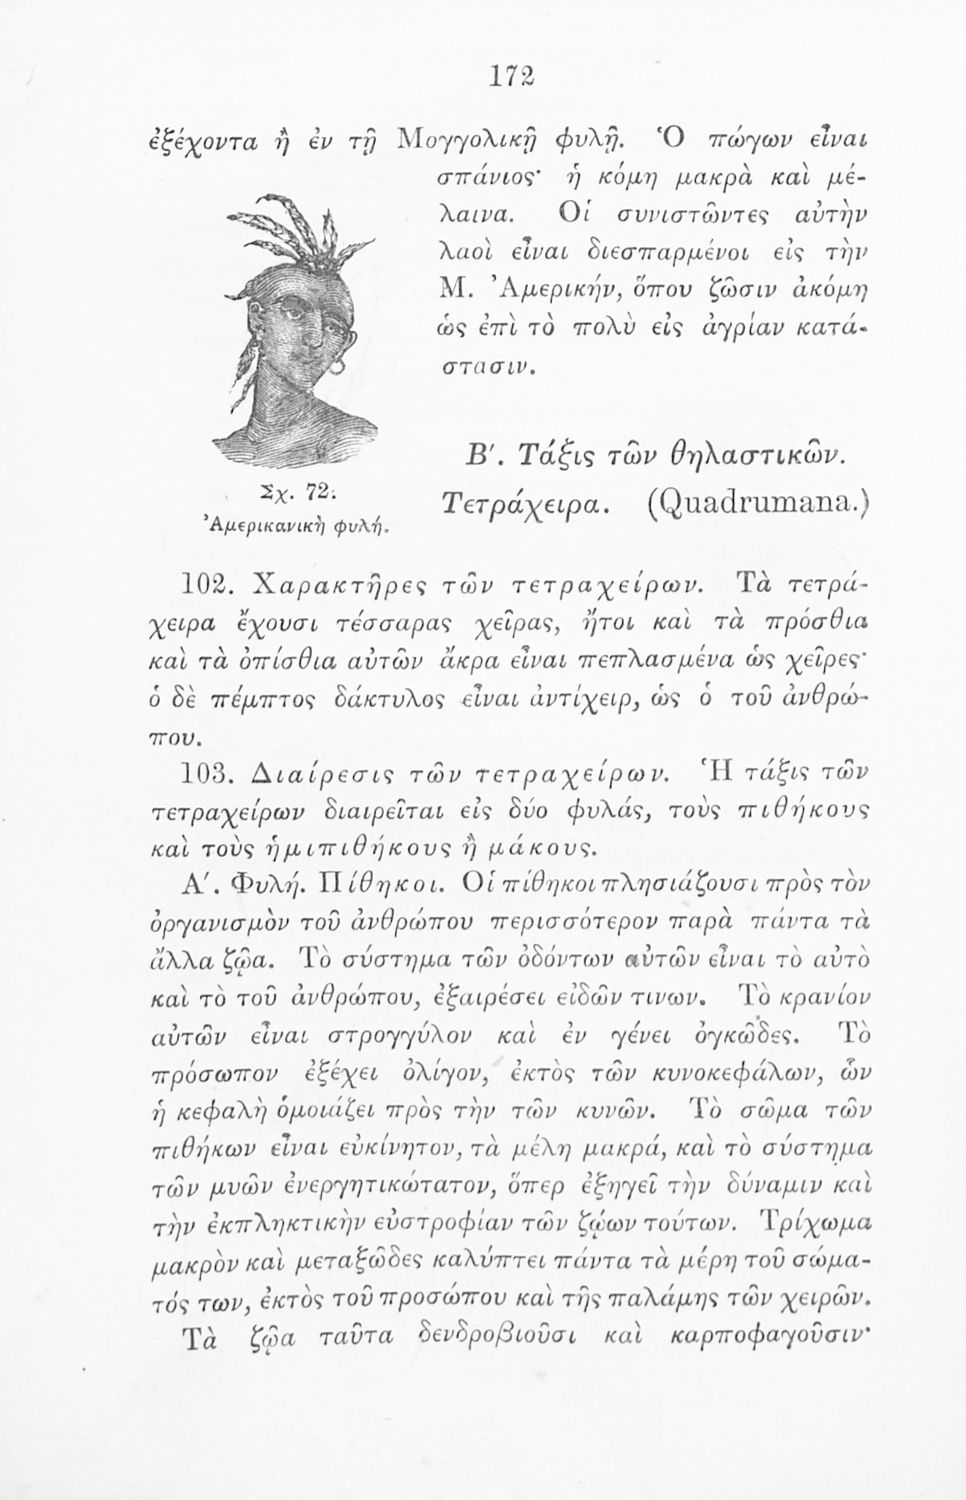 172
ἐξέχοντα ἢ ἐν τῇ Μογγολικῇ φυλῇ. Ὁ πώγων εἶναι
σπάνιος· ἡ κόμη μακρὰ καὶ μέ-
λαινα. Οἱ συνιστῶντες αὐτὴν
λαοὶ εἶναι διεσπαρμένοι εἰς τὴν
Μ. Ἀμερικήν, ὅπου ζῶσιν ἀκόμη
ὡς ἐπὶ τὸ πολὺ εἰς ἀγρίαν κατά-
στασιν.
Σχ. 72.
Ἀμερικανικὴ φυλή.
Β'. Τάξις τῶν θηλαστικῶν.
Τετράχειρα. (Quadrumana.)
102. Χαρακτῆρες τῶν τετραχείρων. Τὰ τετρά-
χειρα ἔχουσι τέσσαρας χεῖρας, ἤτοι καὶ τὰ πρόσθια
καὶ τὰ ὀπίσθια αὐτῶν ἄκρα εἶναι πεπλασμένα ὡς χεῖρες·
ὁ δὲ πέμπτος δάκτυλος εἶναι ἀντίχειρ, ὡς ὁ τοῦ ἀνθρώ-
που.
103. Διαίρεσις τῶν τετραχείρων. Ἡ τάξις τῶν
τετραχείρων διαιρεῖται εἰς δύο φυλάς, τοὺς πιθήκους
καὶ τοὺς ἡμιπιθήκους ἢ μάκους.
Α'. Φυλή. Πίθηκοι. Οἱ πίθηκοι πλησιάζουσι πρὸς τὸν
ὀργανισμὸν τοῦ ἀνθρώπου περισσότερον παρὰ πάντα τὰ
ἄλλα ζῷα. Τὸ σύστημα τῶν ὀδόντων αὐτῶν εἶναι τὸ αὐτὸ
καὶ τὸ τοῦ ἀνθρώπου, ἐξαιρέσει εἰδῶν τινων. Τὸ κρανίον
αὐτῶν εἶναι στρογγύλον καὶ ἐν γένει ὀγκῶδες. Τὸ
πρόσωπον ἐξέχει ὀλίγον, ἐκτὸς τῶν κυνοκεφάλων, ὧν
ἡ κεφαλὴ ὁμοιάζει πρὸς τὴν τῶν κυνῶν. Τὸ σῶμα τῶν
πιθήκων εἶναι εὐκίνητον, τὰ μέλη μακρά, καὶ τὸ σύστημα
τῶν μυῶν ἐνεργητικώτατον, ὅπερ ἐξηγεῖ τὴν δύναμιν καὶ
τὴν ἐκπληκτικὴν εὐστροφίαν τῶν ζῴων τούτων. Τρίχωμα
μακρὸν καὶ μεταξῶδες καλύπτει πάντα τὰ μέρη τοῦ σώμα-
τός των, ἐκτὸς τοῦ προσώπου καὶ τῆς παλάμης τῶν χειρῶν.
Τὰ ζῷα ταῦτα δενδροβιοῦσι καὶ καρποφαγοῦσιν·